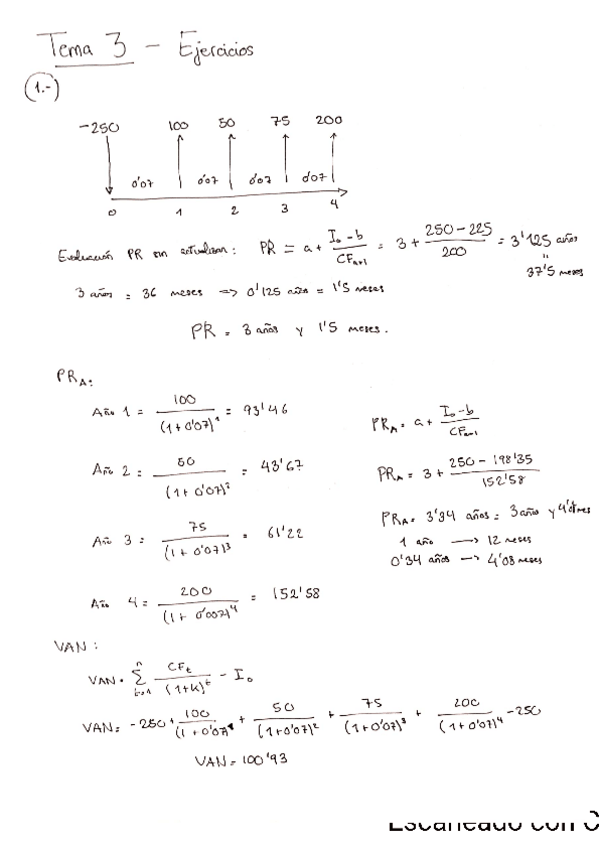 Tema 3 - Ejercicios
1.-
-250 100 50 75 200
0'07 0'07 0'07 0'07
0 1 2 3 4
Evaluación PR sin actualizar: PR = a + (I₀ - b)/CFₐ₊₁ = 3 + (250 - 225)/200 = 3'125 años
"
37'5 meses
3 años = 36 meses => 0'125 años = 1'5 meses
PR = 3 años y 1'5 meses.
PR_A:
Año 1 = 100/(1+0'07)¹ = 93'46
Año 2 = 50/(1+0'07)² = 43'67
Año 3 = 75/(1+0'07)³ = 61'22
Año 4 = 200/(1+0'007)⁴ = 152'58
PR_A = a + (I₀ - b)/CFₐ₊₁
PR_A = 3 + (250 - 198'35)/152'58
PR_A = 3'34 años = 3 años y
1 año → 12 meses
0'34 años → 4'08 meses
VAN:
VAN = Σ CFₜ/(1+k)ᵗ - I₀
VAN = -250 + 100/(1+0'07)¹ + 50/(1+0'07)² + 75/(1+0'07)³ + 200/(1+0'07)⁴ - 250
VAN = 100'93
Escaneado con C